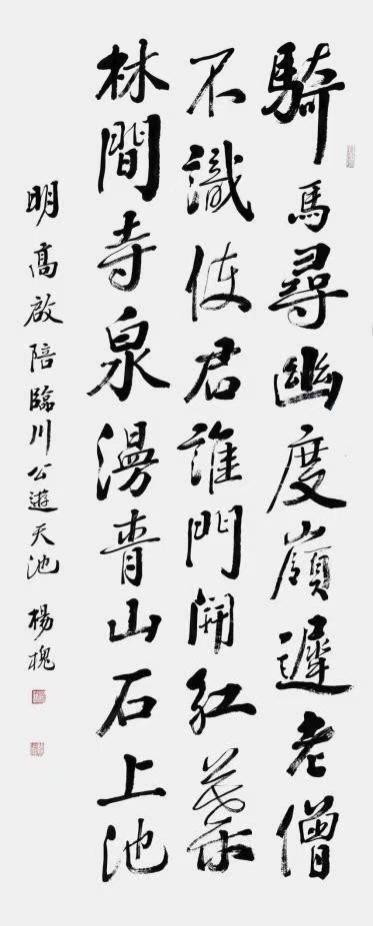 騎馬尋幽度嶺遲老僧
不識使君誰門開紅葉
林間寺泉漫青山石上池
明高啟陪臨川公遊天池 楊槐